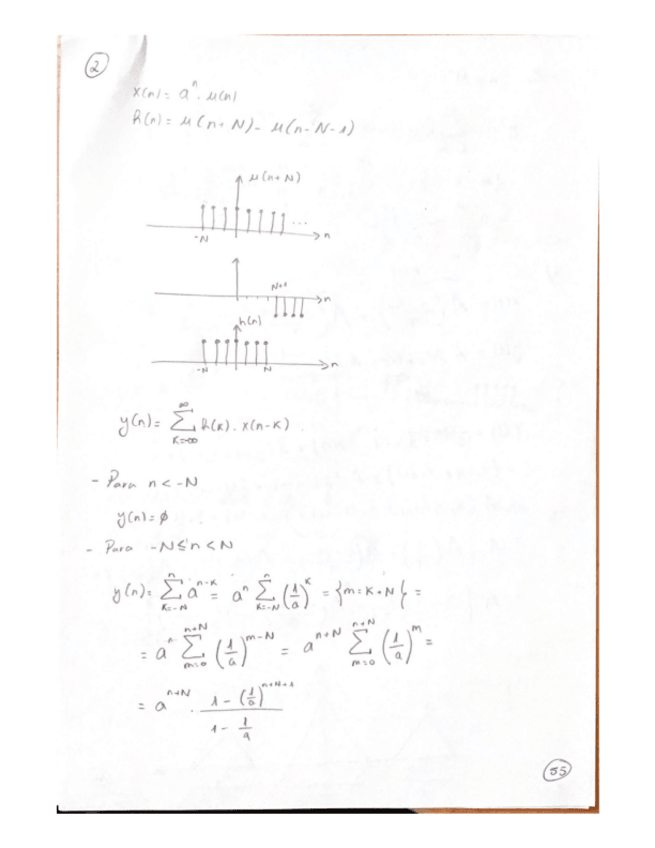 2
x(n) = a^n . u(n)
h(n) = u(n+N) - u(n-N-1)
u(n+N)
...
-N
n
N+1
n
h(n)
-N N n
y(n) = ∑_{K=-∞}^{∞} h(K) . x(n-K) .
- Para n < -N
y(n) = ø
- Para -N ≤ n < N
y(n) = ∑_{K=-N}^{n} a^{n-K} = a^n ∑_{K=-N}^{n} (1/a)^K = {m = K+N} =
= a^n ∑_{m=0}^{n+N} (1/a)^{m-N} = a^{n+N} ∑_{m=0}^{n+N} (1/a)^m =
= a^{n+N} . (1 - (1/a)^{n+N+1}) / (1 - 1/a)
55